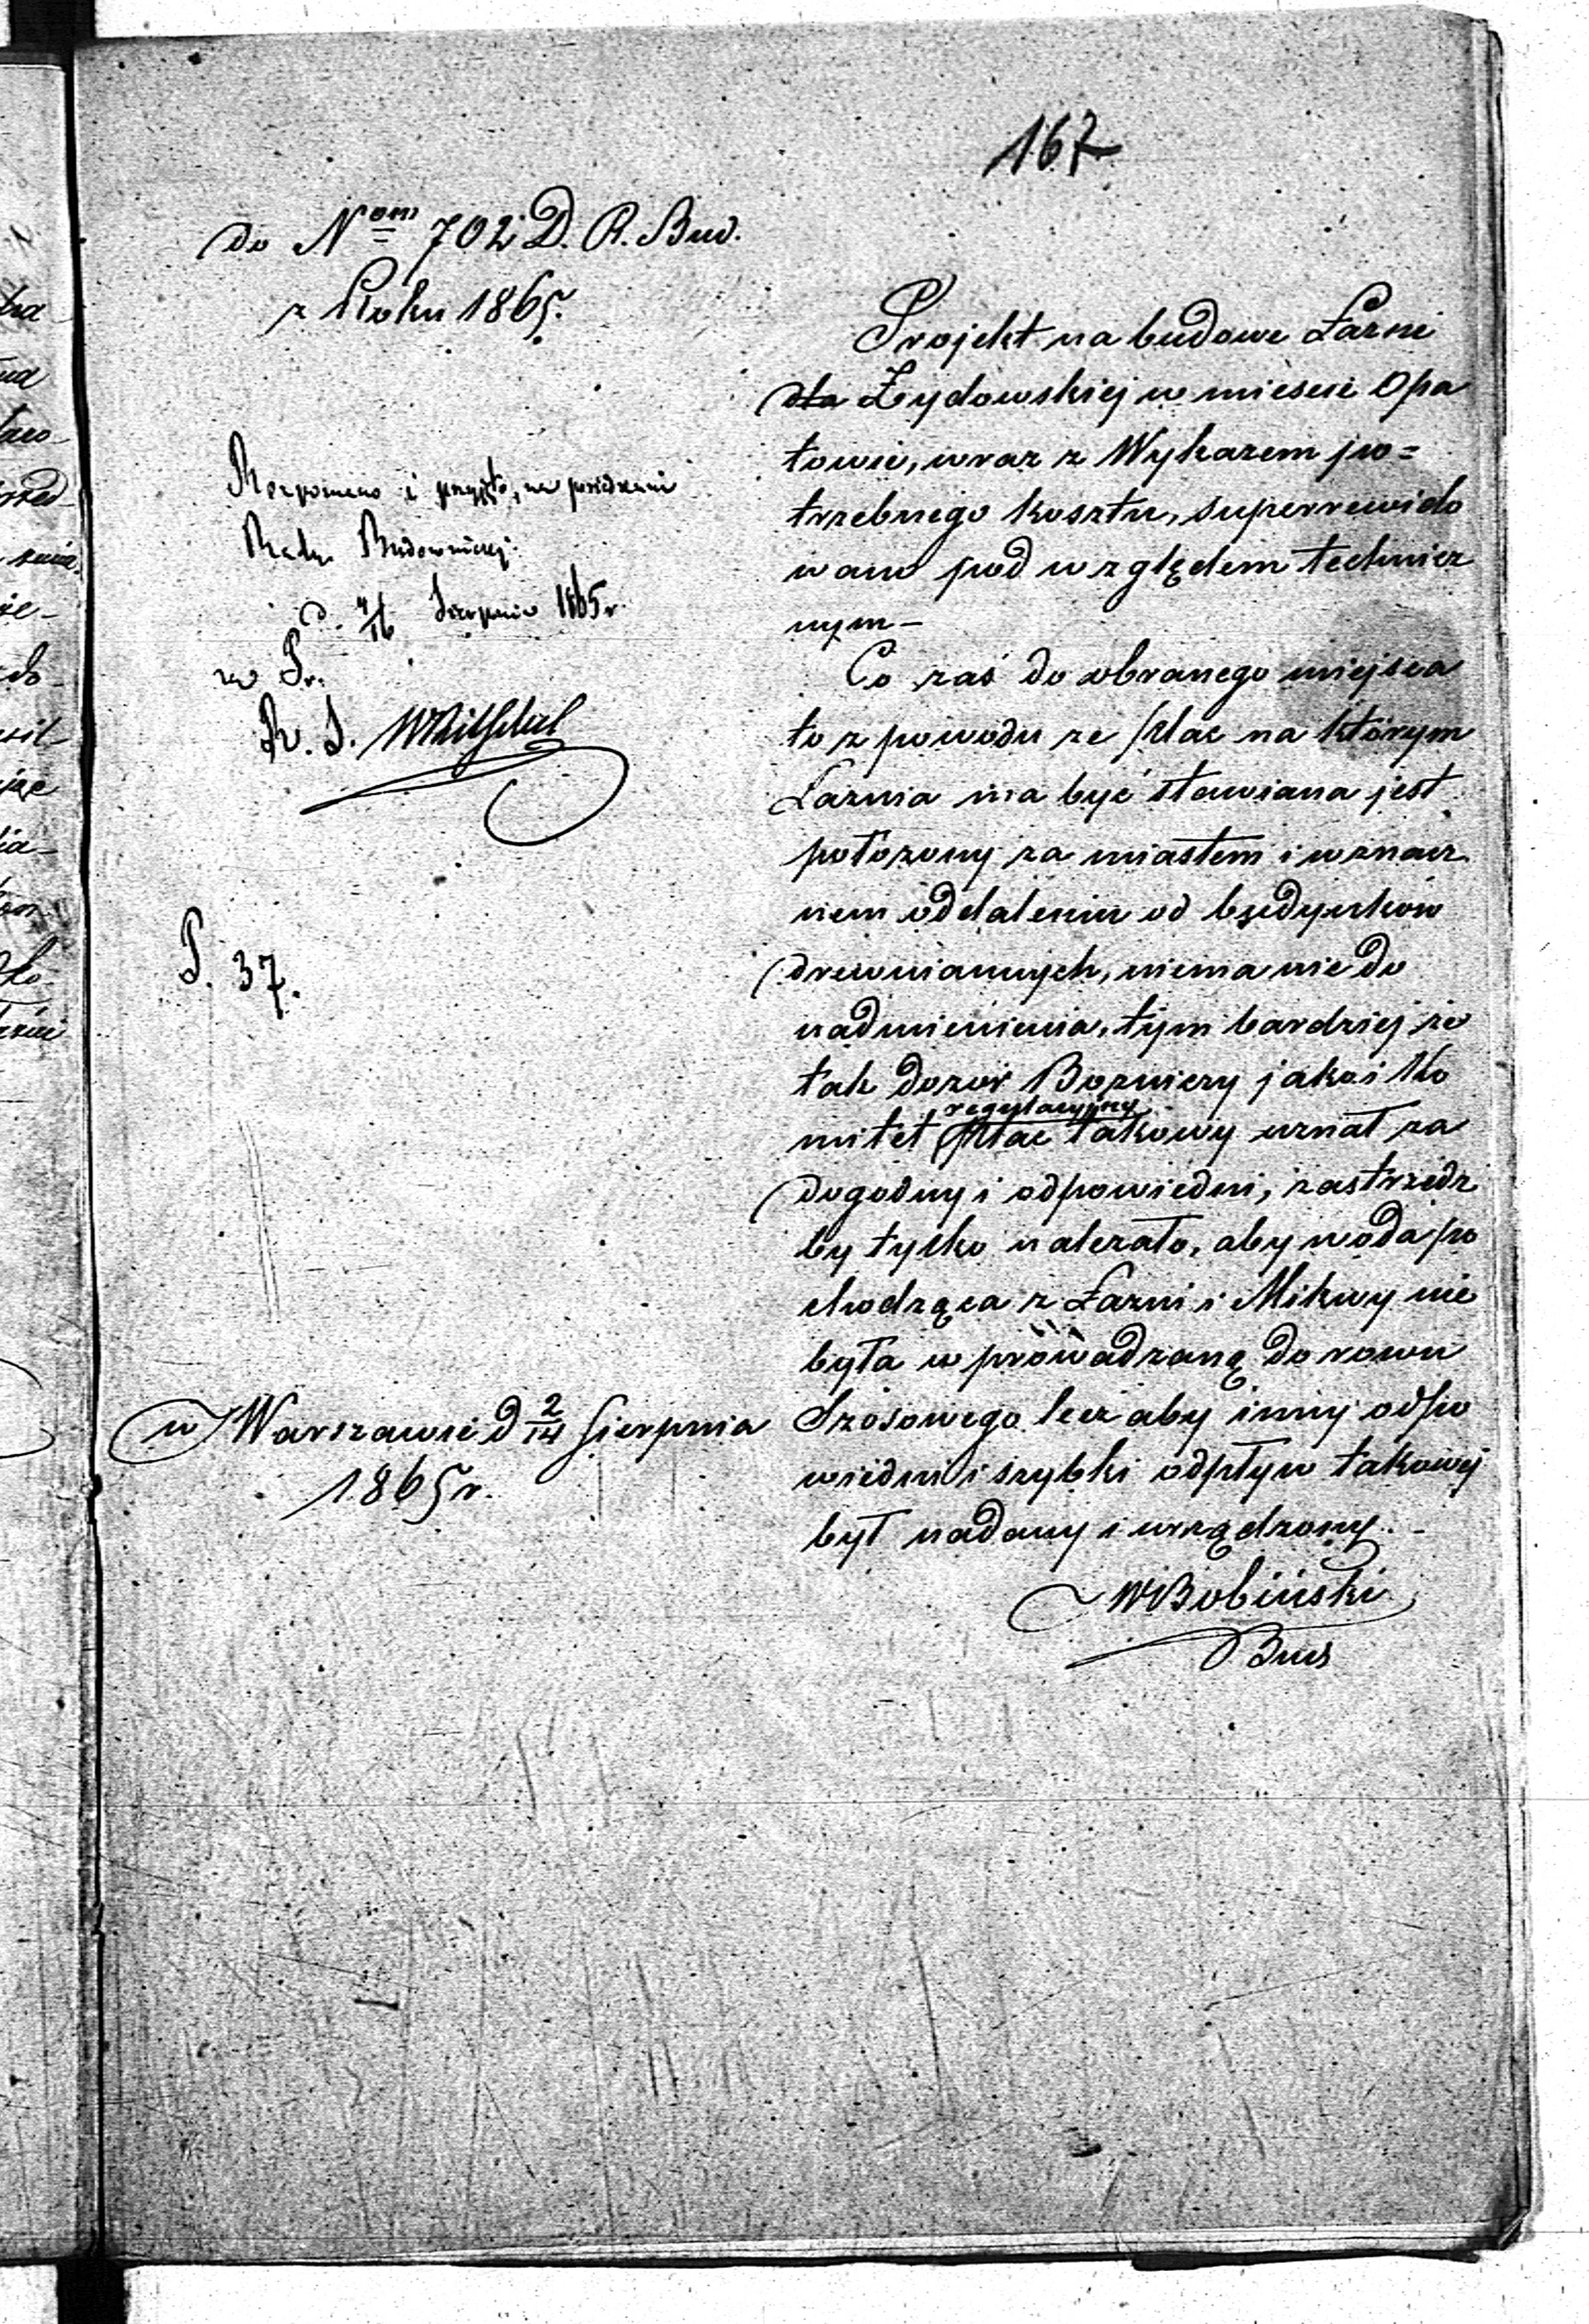 167
do N^om 702 D. R. Bud.
z Roku 1865.
Rozpoznano i przyjęto, na posiedzeniu
Rady Budowniczej
d. 4/16 Sierpnia 1865 r.
za Pr.
R. S.
P. 37.
w Warszawie d 2/14 Sierpnia
1865 r.
Projekt na budowe Łazni
dla Żydowskiej w miescie Opa
towie, wraz z Wykazem po=
trzebnego kosztu, superrewido
wano pod względem technicz
nym –
Co zaś do obranego miejsca
to z powodu ze plac na którym
Łaznia ma być stawiana jest
położony za miastem i w znacz
nem oddaleniu od budynków
drewnianych, niema nic do
nadmienienia, tym bardziej że
tak dozór Bozniczy jako i Ko
regulacyjny
mitet plac takowy uznał za
dogodny i odpowiedni, zastrzedz
by tylko należało, aby woda po
chodząca z Łazni i Mikwy nie
była wprowadzaną do rowu
Szosowego lecz aby inny odpo
wiedni i szybki odpływ takowej
był nadany i urządzony. –
WBobiński
Bud